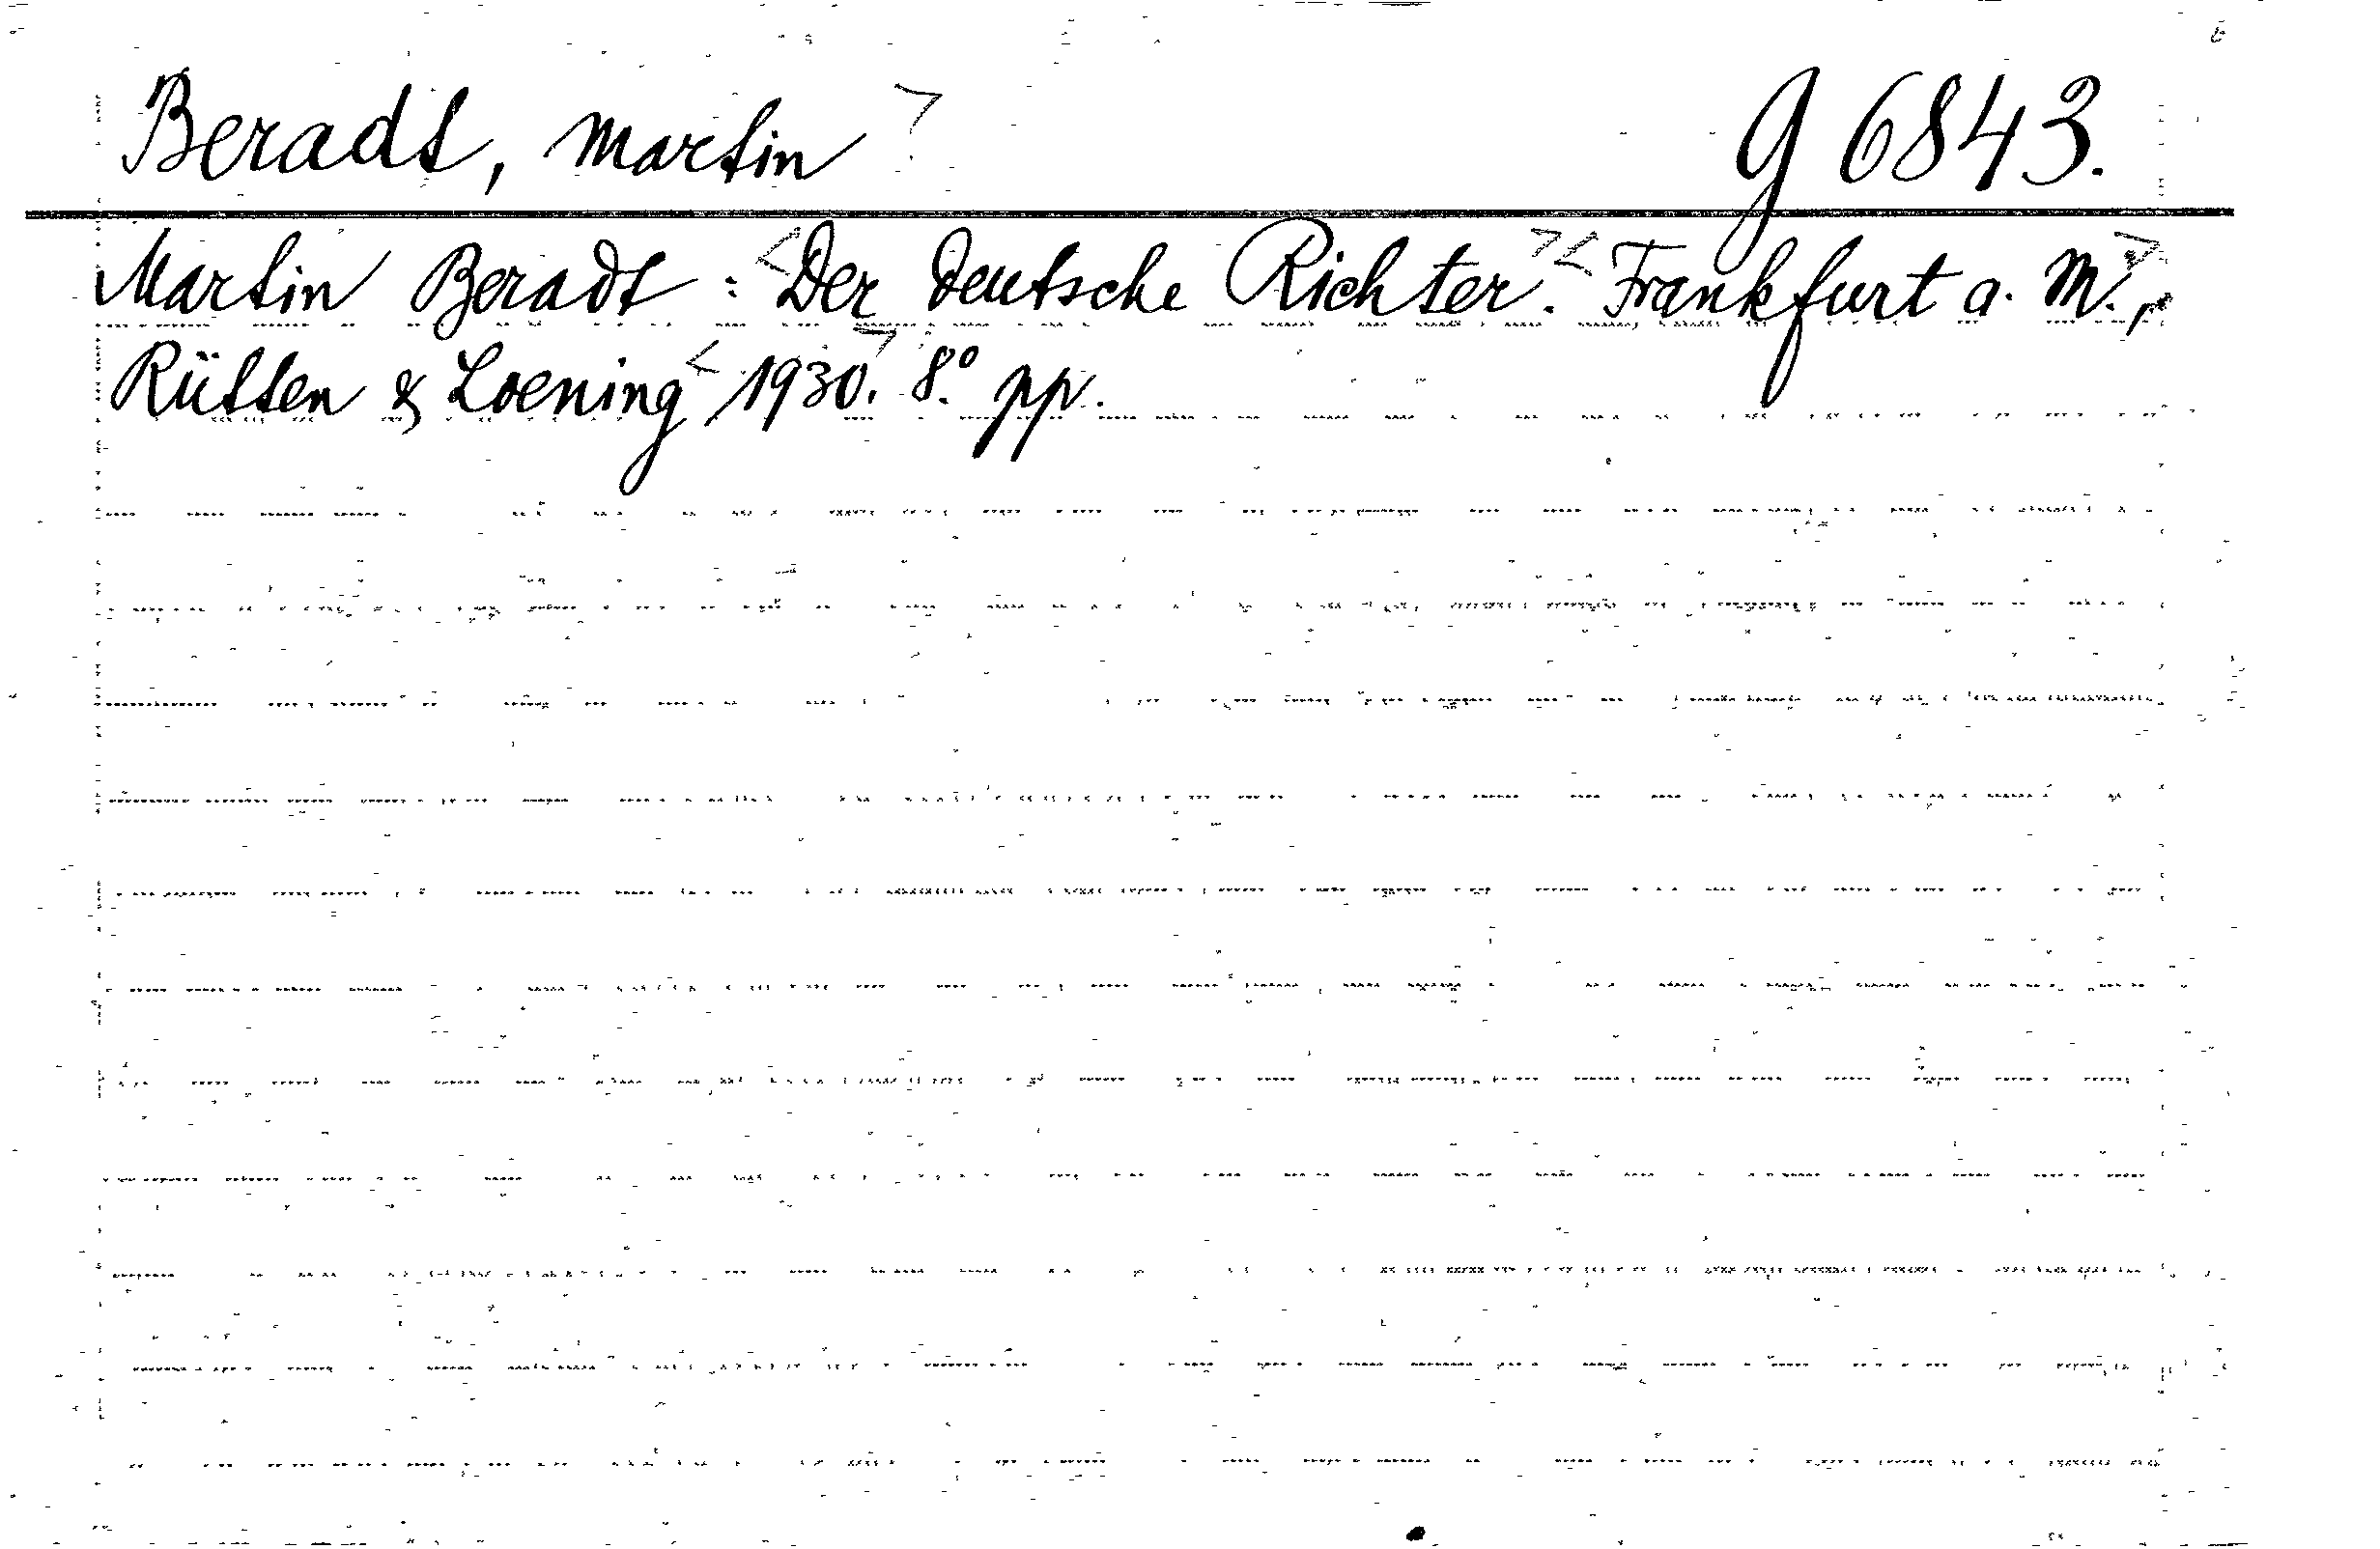 Beradt, Martin > G 6843.
Martin Beradt: <Der deutsche Richter.> <Frankfurt a. M.,>
Rütten & Loening < 1930.> 8.° pp.